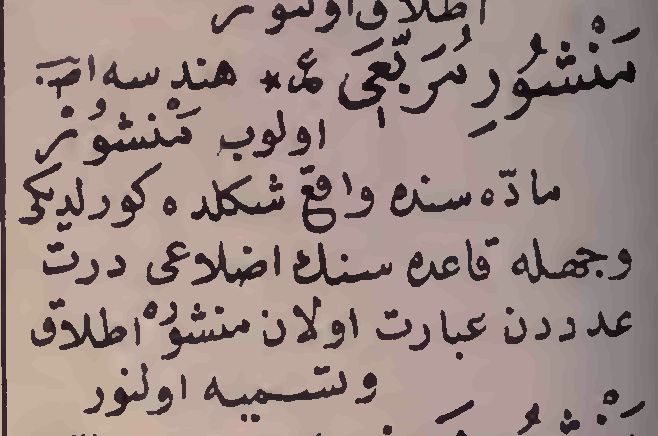 اطلاق اولنور
مَنْشُورِ مُرَبَّعِى عـ * هندسه اصـ
اولوب مَنْشُورْ
مادّه سنده واقع شكلده كورلديكى
وجهله قاعده سنك اضلاعى درت
عدددن عبارت اولان منشوره اطلاق
وتسميه اولنور